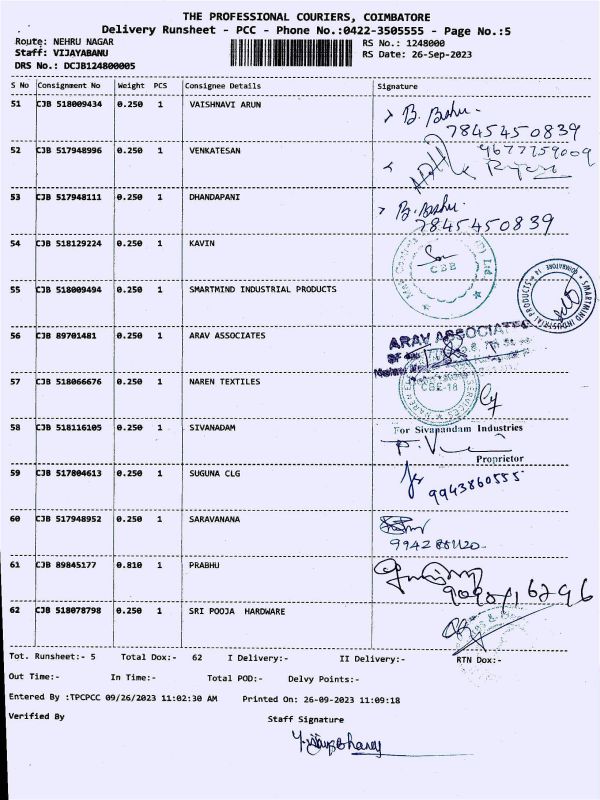 THE PROFESSIONAL COURIERS, COIMBATORE
Delivery Runsheet - PCC - Phone No.:0422-3505555 - Page No.:5
Route: NEHRU NAGAR RS No.: 1248000
Staff: VIJAYABANU RS Date: 26-Sep-2023
DRS No.: DCJB124800005
S No Consignment No Weight PCS Consignee Details Signature
51 CJB 518009434 0.250 1 VAISHNAVI ARUN
7845450839
52 CJB 517948996 0.250 1 VENKATESAN 9677759009
53 CJB 517948111 0.250 1 DHANDAPANI
7845450839
54 CJB 518129224 0.250 1 KAVIN
CBE
55 CJB 518009494 0.250 1 SMARTMIND INDUSTRIAL PRODUCTS
SMARTMIND INDUSTRIAL PRODUCTS
56 CJB 89701481 0.250 1 ARAV ASSOCIATES ARAV ASSOCIATES
57 CJB 518066676 0.250 1 NAREN TEXTILES
CBE-18
58 CJB 518116105 0.250 1 SIVANADAM For Sivanandam Industries
Proprietor
59 CJB 517804613 0.250 1 SUGUNA CLG
9943860555
60 CJB 517948952 0.250 1 SARAVANANA
61 CJB 89845177 0.810 1 PRABHU
62 CJB 518078798 0.250 1 SRI POOJA HARDWARE
Tot. Runsheet:- 5 Total Dox:- 62 I Delivery:- II Delivery:- RTN Dox:-
Out Time:- In Time:- Total POD:- Delvy Points:-
Entered By :TPCPCC 09/26/2023 11:02:30 AM Printed On: 26-09-2023 11:09:18
Verified By Staff Signature